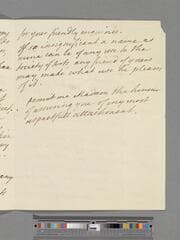 for your friendly enquiries.
If so insignificant a name as
mine can be of any use to the
society of Arts any friend of yours
may make what use he pleases
of it.
permit me Madam the honour
of assuring you of my most
respectfull attachment.